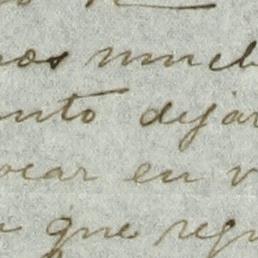 nos much
ento dejar
ocar en v
a que regu